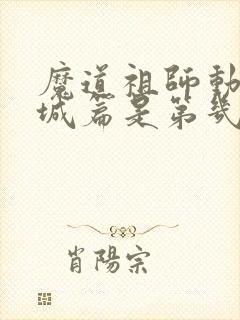 魔道祖師動
城篇是第幾
肖陽宗